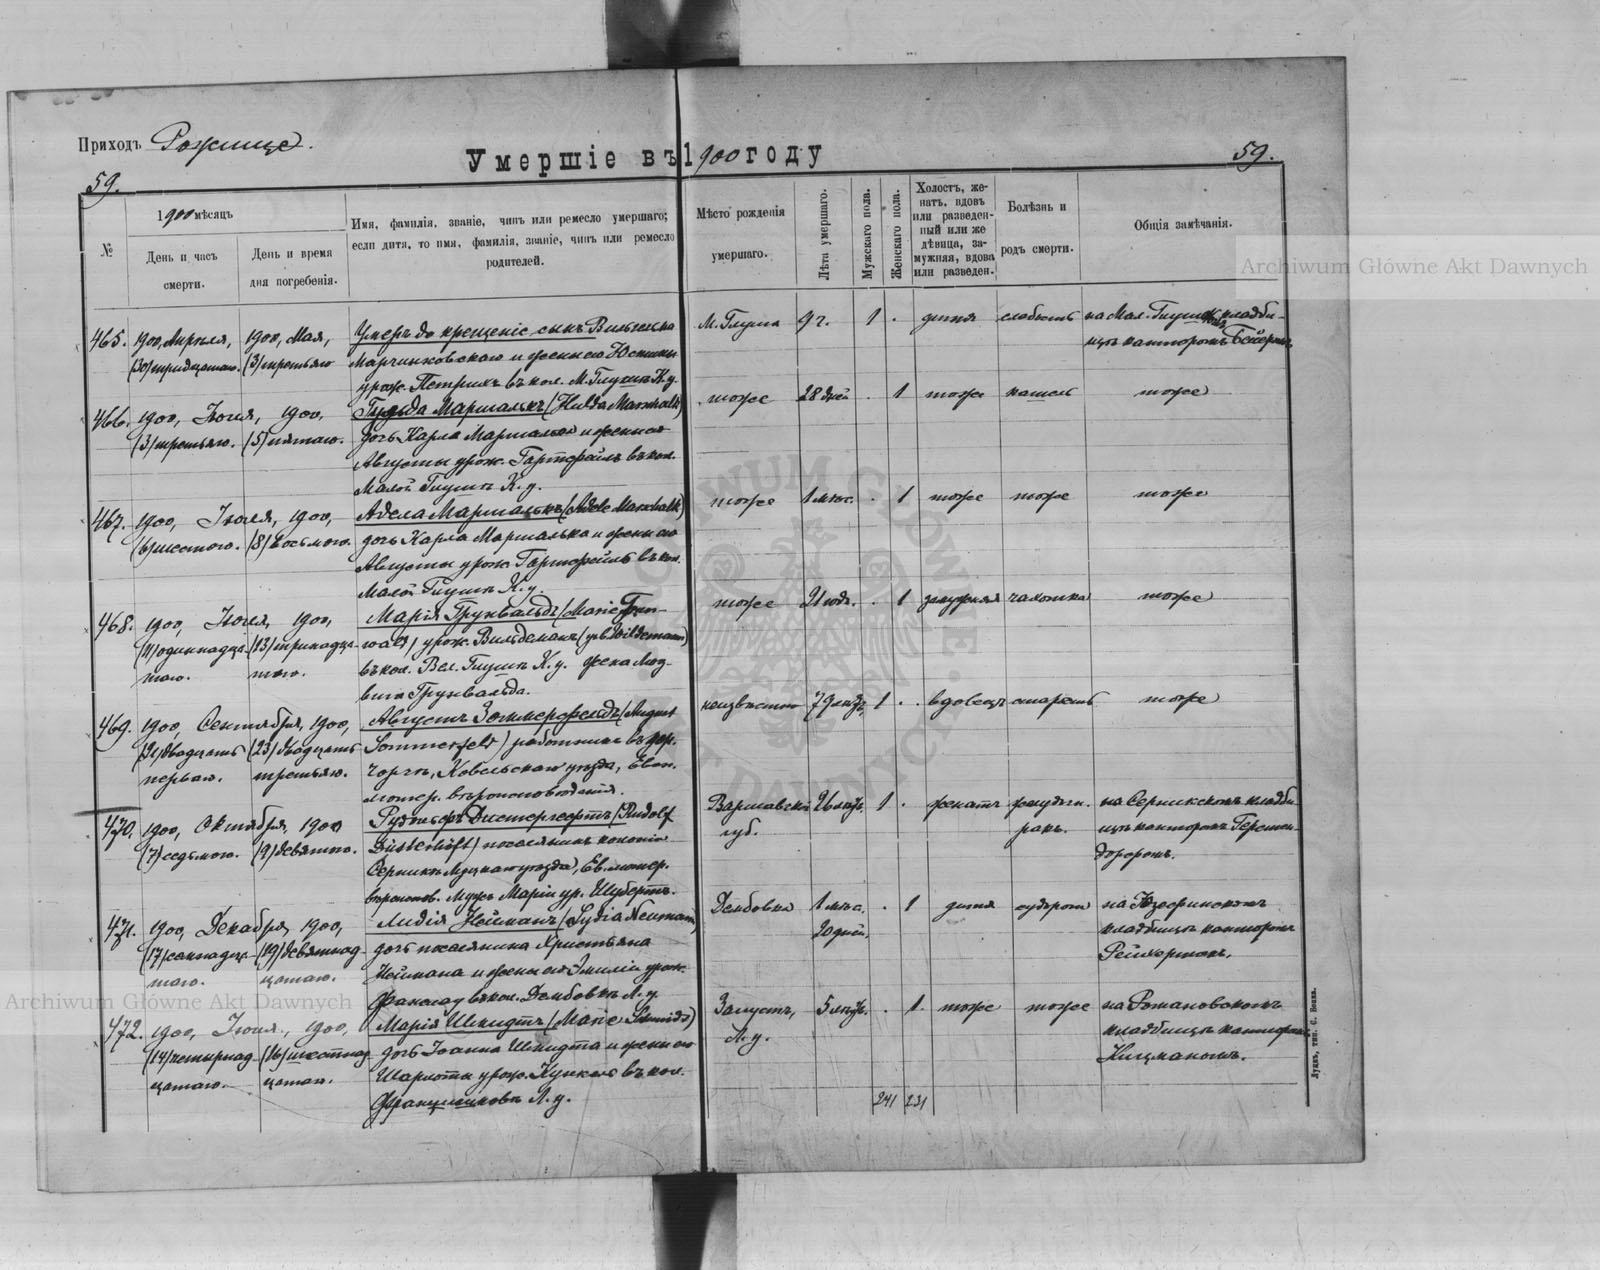 Приходъ Рожище.
Умершіе въ 1900 году
59.
59.
№
1900 мѣсяцъ
День и часъ
смерти.
День и время
дня погребенія.
Имя, фамилія, званіе, чинъ или ремесло умершаго;
если дитя, то имя, фамилія, званіе, чинъ или ремесло
родителей.
Мѣсто рожденія
умершаго.
Лѣта умершаго.
Мужскаго пола.
Женскаго пола.
Холостъ, же-
натъ, вдовъ
или разведен-
ный или же
дѣвица, за-
мужняя, вдова
или разведен.
Болѣзнь и
родъ смерти.
Общія замѣчанія.
465.
1900, Апрѣля,
(30) тридцатаго.
1900, Мая,
(3) третьяго
Умеръ до крещенія сынъ Вильгельма
Марчинковскаго и жены его Юстины
урож. Петрикъ въ кол. М. Глушѣ К. у.
М. Глуша
9 ч.
1
.
дитя
слабость
на Мал. Глушск. кладби-
щѣ канторомъ
466.
1900, Іюля,
(3) третьяго.
1900,
(5) пятаго.
Гульда Маршалькъ (Hulda Marschalk)
дочь Карла Маршалька и жены его
Августы урож. въ кол.
Малой Глушѣ К. у.
тоже
28 дней
.
1
тоже
кашель
тоже
467.
1900, Іюля,
(6) шестого.
1900,
(8) восьмого.
Адела Маршалькъ (Adele Marschalk)
дочь Карла Маршалька и жены его
Августы урож. въ кол.
Малой Глушѣ К. у.
тоже
1 мѣс.
.
1
тоже
тоже
тоже
468.
1900, Іюля,
(11) одиннадца-
таго.
1900,
(13) тринадца-
таго.
Марія Грунвальдъ (Marie Grun-
wald) урож. Вильдеманъ (geb. Wildemann)
въ кол. Вел. Глушѣ К. у. жена Люд-
вига Грунвальда.
тоже
21 годъ.
.
1
замужняя
чахотка
тоже
469.
1900, Сентября,
(21) двадцать
перваго.
1900,
(23) двадцать
третьяго.
Августъ Зоммерфельдъ (August
Sommerfeld) работникъ въ дер.
Ковельскаго уѣзда, Еван.
лютер. вѣроисповѣданія.
неизвѣстно
79 лѣтъ,
1
.
вдовецъ
старость
тоже
470.
1900, Октября,
(7) седьмого.
1900
(9) девятого.
Рудольфъ Дистергефтъ (Rudolf
Düsterhöft) поселянинъ колоніи
Серникъ Луцкаго уѣзда, Ев. лютер.
вѣроиспов. Мужъ Маріи ур. Шубертъ.
Варшавской
губ.
26 лѣтъ,
1
.
женатъ
желудочн.
ракъ.
на Серникскомъ кладби-
щѣ канторомъ Герстен-
471.
1900, Декабря,
(17) семнадца-
таго.
1900,
(19) девятнад-
цатаго.
Лидія Нейманъ (Lydia Neumann)
дочь поселянина Христьяна
Неймана и жены его Эмиліи урож.
въ кол. Дембовкѣ Л. у.
Дембовка
1 мѣс.
20 дней.
.
1
дитя
судороги
на Юзефинскомъ
кладбищѣ канторомъ
472.
1900, Іюля,
(14) четырнад-
цатаго.
1900,
(16) шестнад-
цатаго.
Марія Шмидтъ (Marie Schmidt)
дочь Іоанна Шмидта и жены его
Шарлоты урож. Кункель въ кол.
Л. у.
Л. у.
5 лѣтъ.
.
1.
тоже
тоже
на Романовскомъ
кладбищѣ канторомъ
241
231
Луцкъ, тип. С. Бонка.
Archiwum Główne Akt Dawnych
Archiwum Główne Akt Dawnych
ARCHIWUM GŁÓWNE AKT DAWNYCH